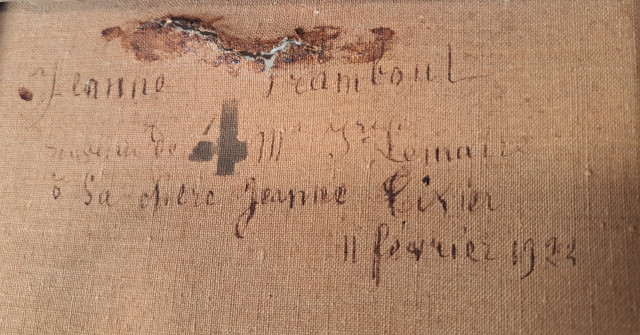 Jeanne Tramboul
souvenir de 4 Mme Lemaire
à Sa chère Jeanne Tixier
11 février 1922